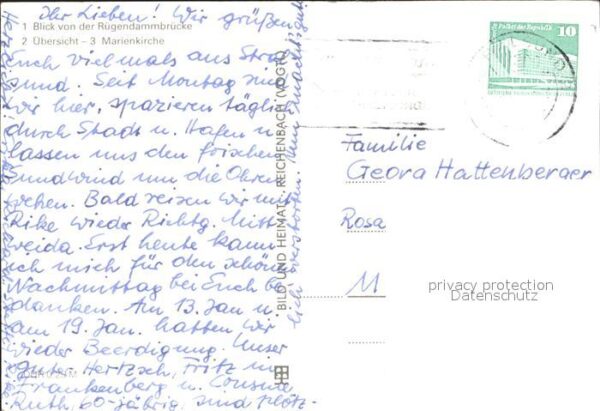 Ihr Lieben! Wir grüßen
1 Blick von der Rügendammbrücke
2 Übersicht - 3 Marienkirche
Euch vielmals aus Stral
sund. Seit Montag sind
wir hier, spazieren täglich
durch Stadt u. Hafen u.
lassen uns den frischen
Sundwind um die Ohren
wehen. Bald reisen wir mit
Rike wieder Richtg. Mitt
weida. Erst heute kann
ich mich für den schönen
Nachmittag bei Euch be
danken. Am 13. Jan u.
am 19. Jan. hatten wir
wieder Beerdigung. Unser
guter Hertzsch, Fritz in
Frankenberg u. Cousine
Ruth, 60-jährig, sind plötz-
lich verstorben.
BILD UND HEIMAT REICHENBACH (VOGTL)
Palast der Republik
10
Familie
Georg Hattenberger
Rosa
11
privacy protection
Datenschutz